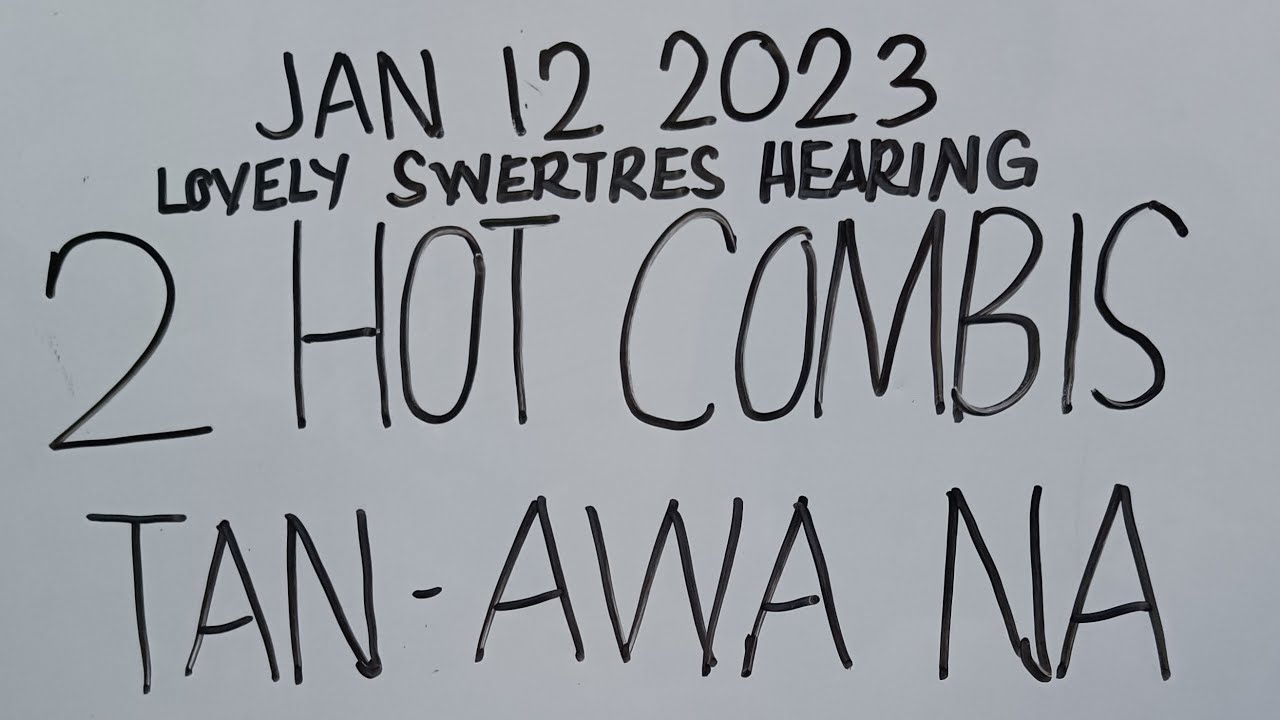 JAN 12 2023
LOVELY SWERTRES HEARING
2 HOT COMBIS
TAN-AWA NA